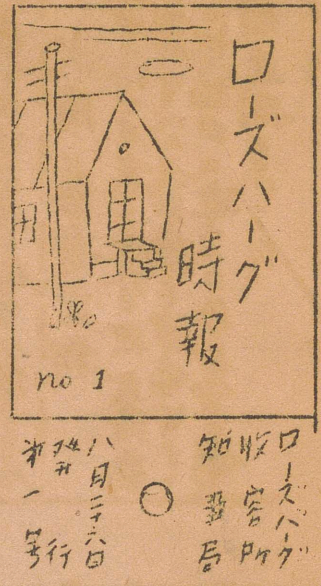 ローズバーグ
時報
no 1
ローズバーグ
収容所
知事局
八月二十六日
発行
第一号